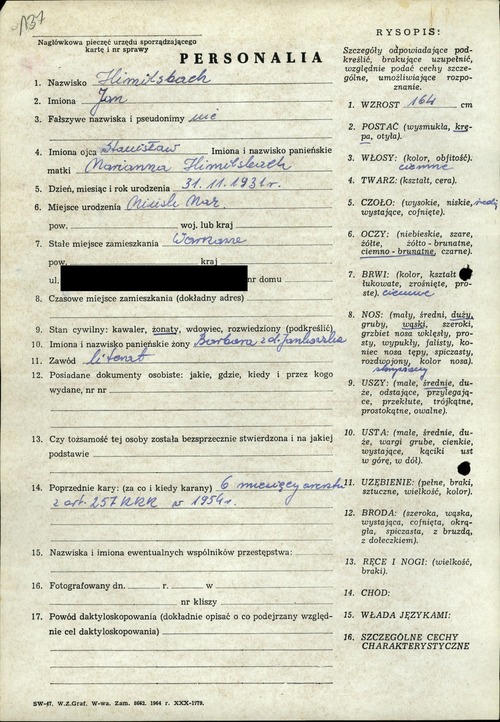 137
Nagłówkowa pieczęć urzędu sporządzającego
kartę i nr sprawy
PERSONALIA
1. Nazwisko Himilsbach
2. Imiona Jan
3. Fałszywe nazwiska i pseudonimy nie
4. Imiona ojca Stanisław Imiona i nazwisko panieńskie
matki Marianna Himilsbach
5. Dzień, miesiąc i rok urodzenia 31.11.1931r.
6. Miejsce urodzenia Mińsk Maz.
pow. woj. lub kraj
7. Stałe miejsce zamieszkania Warszawa
pow. kraj
ul. nr domu
8. Czasowe miejsce zamieszkania (dokładny adres)
9. Stan cywilny: kawaler, żonaty, wdowiec, rozwiedziony (podkreślić)
10. Imiona i nazwisko panieńskie żony Barbara z d.
11. Zawód literat
12. Posiadane dokumenty osobiste: jakie, gdzie, kiedy i przez kogo
wydane, nr nr
13. Czy tożsamość tej osoby została bezsprzecznie stwierdzona i na jakiej
podstawie
14. Poprzednie kary: (za co i kiedy karany) 6 miesięcy aresztu
z art. 257 KKK w 1954r.
15. Nazwiska i imiona ewentualnych wspólników przestępstwa:
16. Fotografowany dn. r. w
nr kliszy
17. Powód daktyloskopowania (dokładnie opisać o co podejrzany względ-
nie cel daktyloskopowania)
SW-47. W.Z.Graf. W-wa. Zam. 8662. 1964 r. XXX-1779.
RYSOPIS:
Szczegóły odpowiadające pod-
kreślić, brakujące uzupełnić,
względnie podać cechy szcze-
gólne, umożliwiające rozpo-
znanie.
1. WZROST 164 cm
2. POSTAĆ: (wysmukła, krę-
pa, otyła).
3. WŁOSY: (kolor, obfitość).
ciemne
4. TWARZ: (kształt, cera).
5. CZOŁO: (wysokie, niskie,
wystające, cofnięte).
6. OCZY: (niebieskie, szare,
żółte, żółto - brunatne,
ciemno - brunatne, czarne).
7. BRWI: (kolor, kształt
łukowate, zrośnięte, pro-
ste). ciemne
8. NOS: (mały, średni, duży,
gruby, wąski, szeroki,
grzbiet nosa wklęsły, pro-
sty, wypukły, falisty, ko-
niec nosa tępy, spiczasty,
rozdwojony, kolor nosa).
9. USZY: (małe, średnie, du-
że, odstające, przylegają-
ce, przekłute, trójkątne,
prostokątne, owalne).
10. USTA: (małe, średnie, du-
że, wargi grube, cienkie,
wystające, kąciki ust
w górę, w dół).
11. UZĘBIENIE: (pełne, braki,
sztuczne, wielkość, kolor).
12. BRODA: (szeroka, wąska,
wystająca, cofnięta, okrą-
gła, spiczasta, z bruzdą,
z dołeczkiem).
13. RĘCE I NOGI: (wielkość,
braki).
14. CHÓD:
15. WŁADA JĘZYKAMI:
16. SZCZEGÓLNE CECHY
CHARAKTERYSTYCZNE